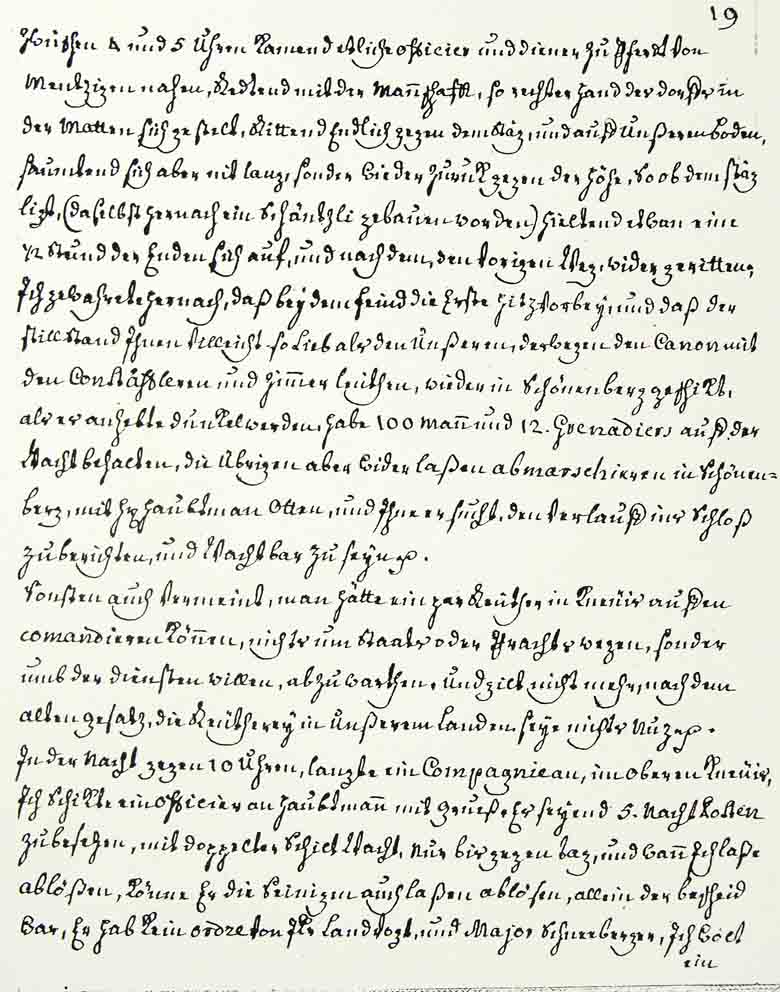 19
Zwüschen 4 und 5 Uhren kamend etliche officier und diener zu Pferdt von
Mentzigen nahen, Redtend mit der Mañschafft, so rechter hand des dorffs in
den Matten sich gestelt, Rittend Endlich gegen dem Stäg, und auff Unßeren boden,
saumtend sich aber nit lang, sonder wieder zurukgegen der höhe, So ob dem stäg
ligt, (daselbst hernach ein Schäntzli gebauen worden) hieltend etwan eine
1/2 Stund der Enden sich auf, und nach dem, den vorigen Weg, wider geritten,
Ich gewahrete hernach, daß bey dem feind die Erste hitz vorbey, und daß der
stillstand Ihnen villeicht so lieb als den Unßeren, deswegen den Canon mit
den Constäfleren und zimmerleüthen, wieder in Schönenberg geschikt,
als er anhebte dunkel werden, habe 100 mañ und 12. Grenadiers auff der
Wacht behalten, die übrigen aber wider laßen abmarschieren in Schönen=
berg, mit Hr haubtman Otten, und Ihne ersucht, den verlauff ins Schloß
zu berichten, und Wachtbar zu seyn.
Sonsten auch vermeint, man hätte ein par Reüther in Kneüis auffen
comandieren Köñen, nichts um Staats oder Prachts wegen, sonder
umb der diensten willen, abzuwarthen. Und gilt nicht mehr, nach dem
alten gesatz, die Reütherey in Unßerem landen seye nichts Nuz.
In der Nacht gegen 10 Uhren, langte ein Compagnie an, im oberen Kneüis,
Ich Schikte ein officier an haubtmañ mit grueß, Er seyend 5. Nacht Posten
zu besetzen, mit doppelter Schilt Wacht, Nur bis gegen tag, und wañ Ich laße
ablößen, Könne Er die Seinigen auch laßen ablösen, allein der bescheid
war, Er hab Kein ordre von Jkr Landvogt, und Major Schneeberger, Ich wolt
ein